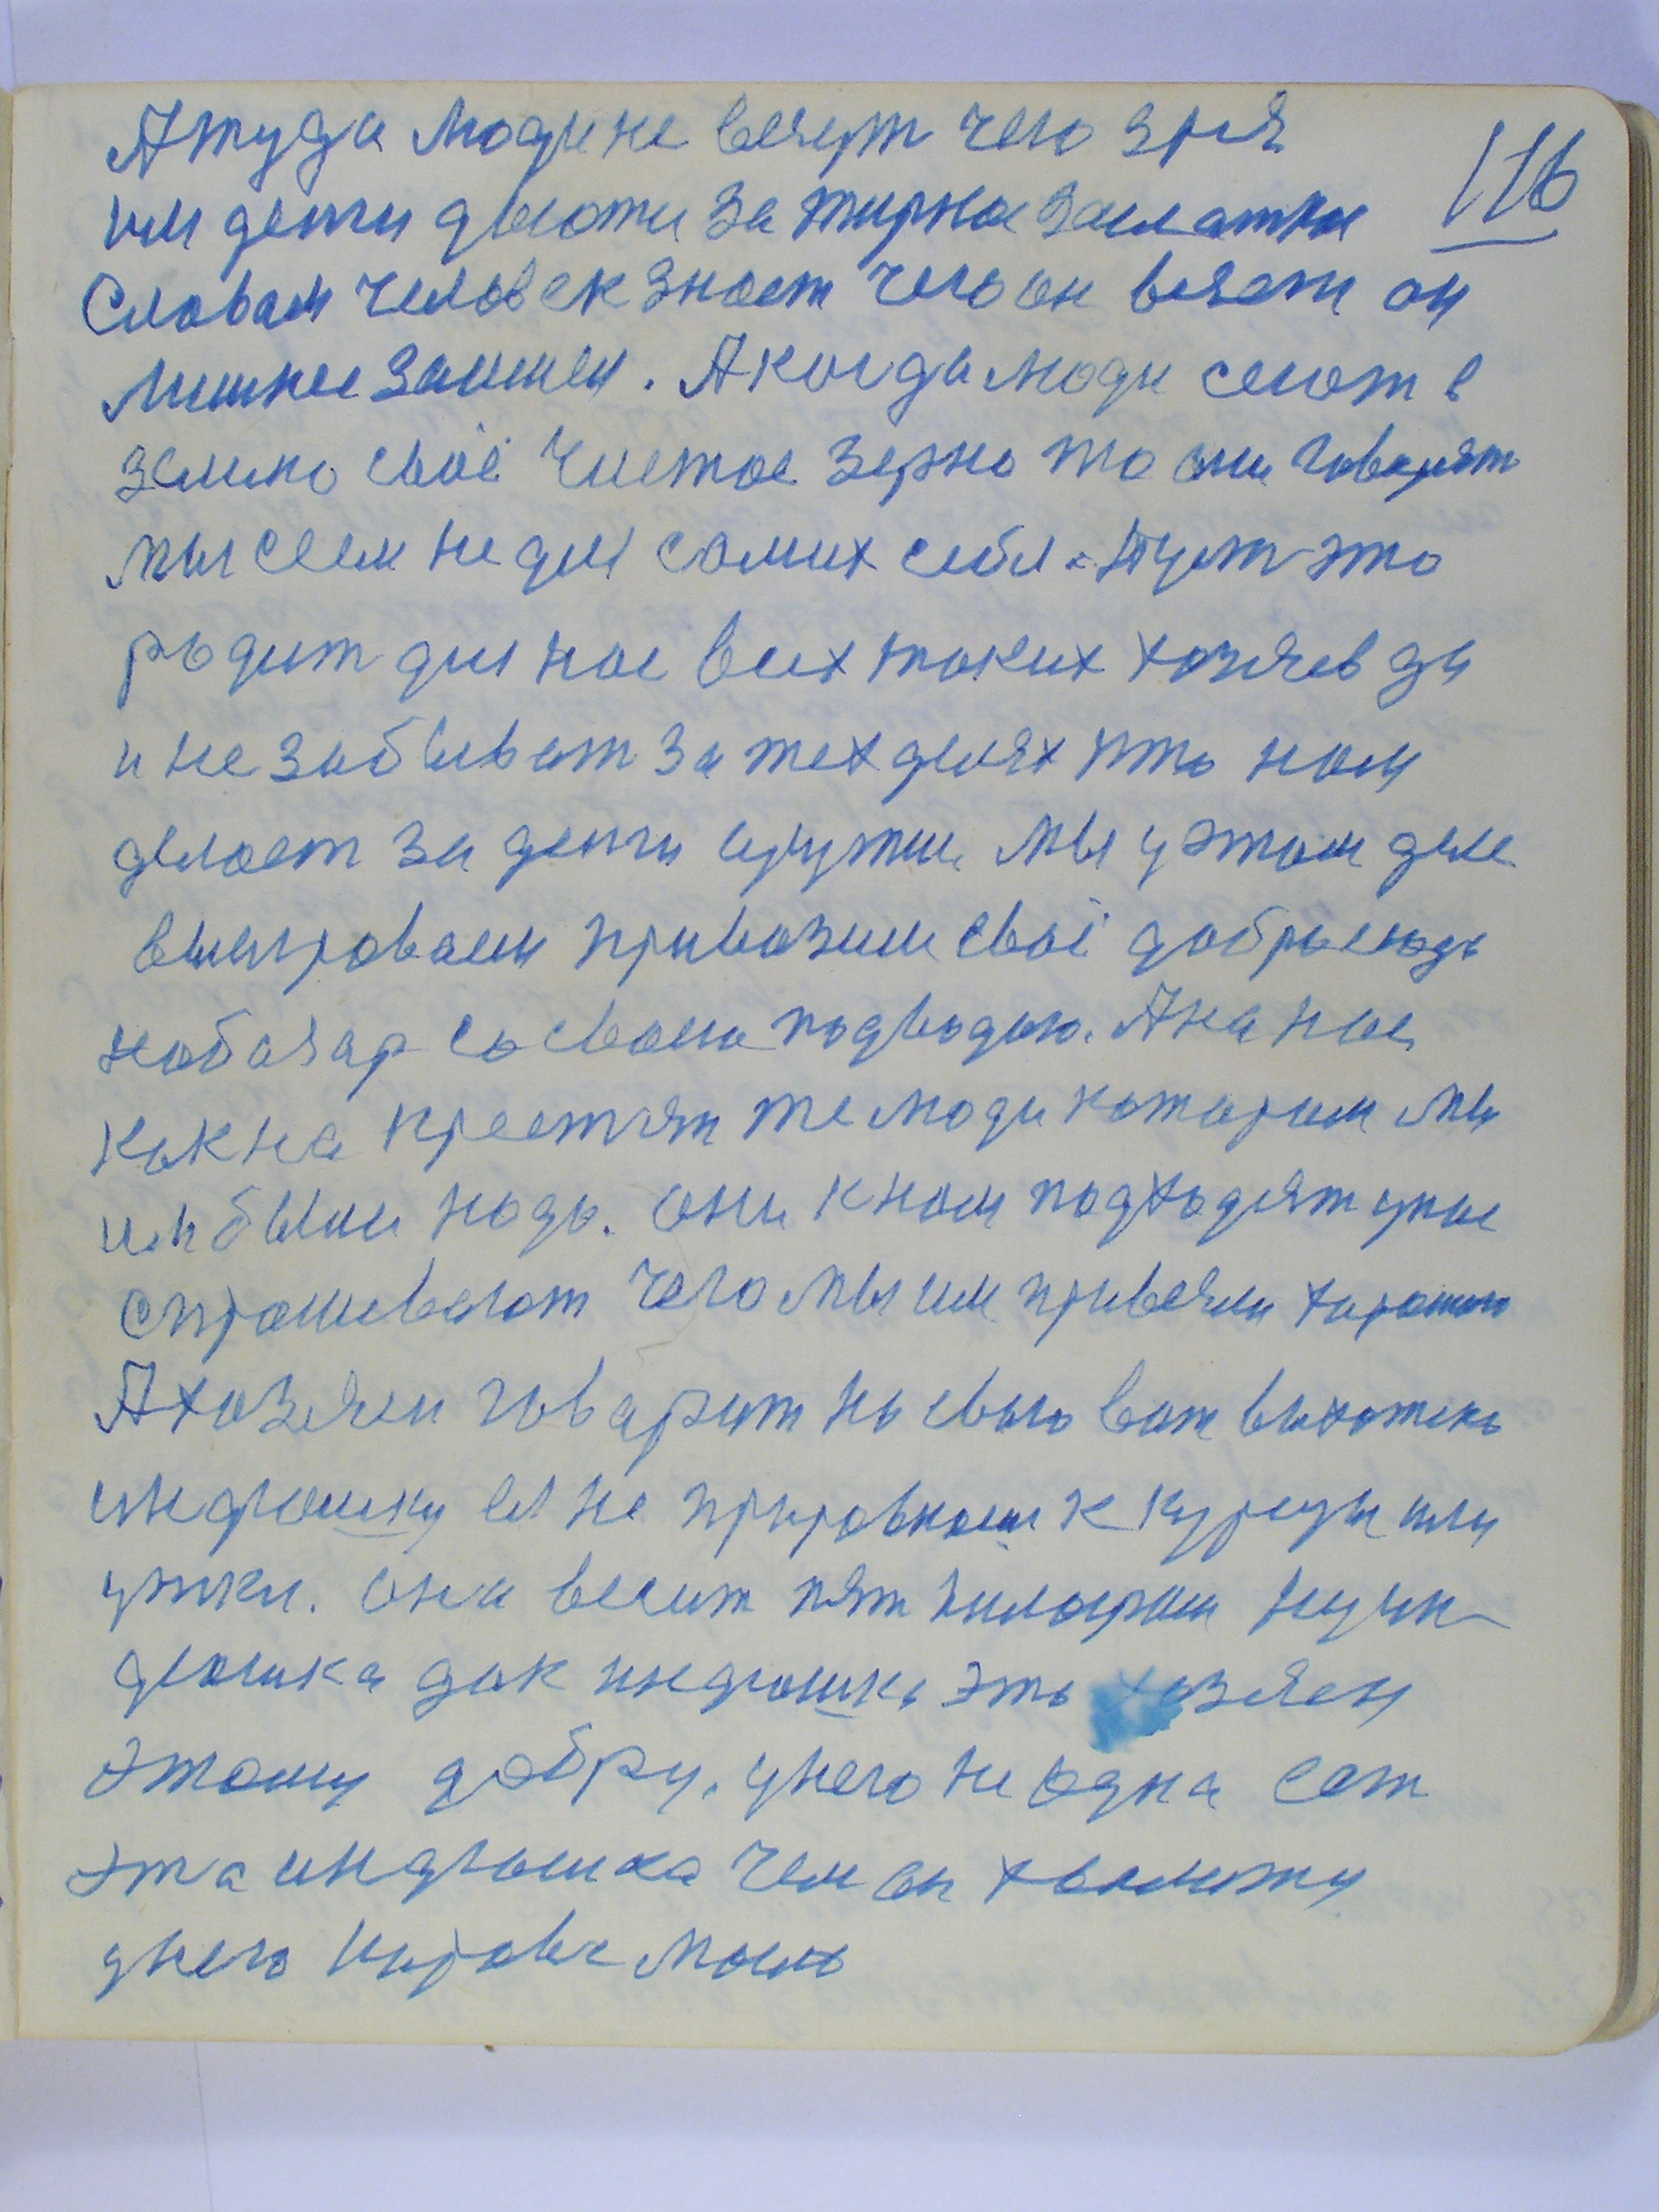 А туда люди не везут чего зря
116
им денги давотжи за жирное залатые
Словам человек знает чего он везет он
лишнее займем. А когда люди сеют в
землю своё чистое зерно то они говорят
мы сеем не для самих себя. Пуст это
родит для нас всех таких хозяев да
и не забывают за тех людях кто нам
делает за денги оружие мы у этом деле
выигроваем привозим своё добро сюда
на базар со своею подводою. А на нас
как на крестян те люди каторым мы
были надо. они к нам подходят у нас
спрашевают чего мы им привезли харошого
А хозяен говарит на свого вот выхотен
индюшку ей не прировнаеш к курецы или
утки. Она весит пят килограм ну ин-
дюшка дак индюшка это хозяен
этому добру. у него не одна ест
эта индюшка чем он хвалитжи
у него карова молоко